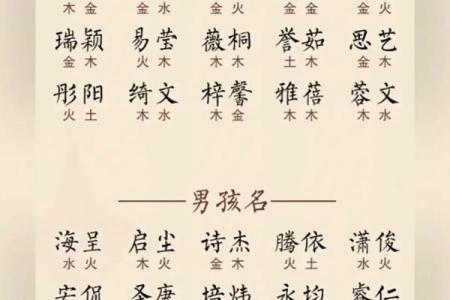 木 金 金 水 金 金 金 火
瑞颖 易莹 薇桐 誉茹 思艺
金 木 火 木 木 木 土 木 金 木
彤阳 绮文 梓馨 雅蓓 蓉文
火 土 木 水 木 金 木 木 木 水
男孩名
海呈 启尘 诗杰 腾依 潇俊
水 火 木 火 金 木 火 土 水 火
宏侃 圣唐 培炜 永均 睿仁